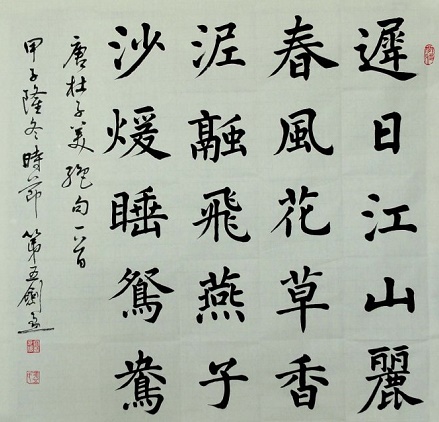 遲日江山麗
春風花草香
泥融飛燕子
沙煖睡鴛鴦
唐杜子美絕句一首
甲子隆冬時節 第五劍